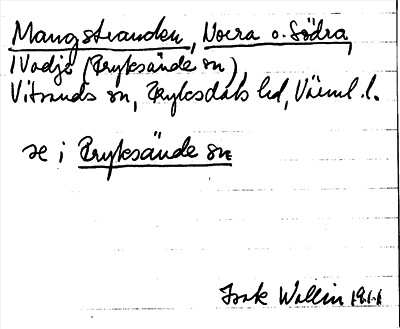 Mangstranden, Norra o. Södra,
(Fryksände sn)
Vitsands sn, Fryksdals hd, Värml. l.
se i Fryksände sn
Isak Wallin